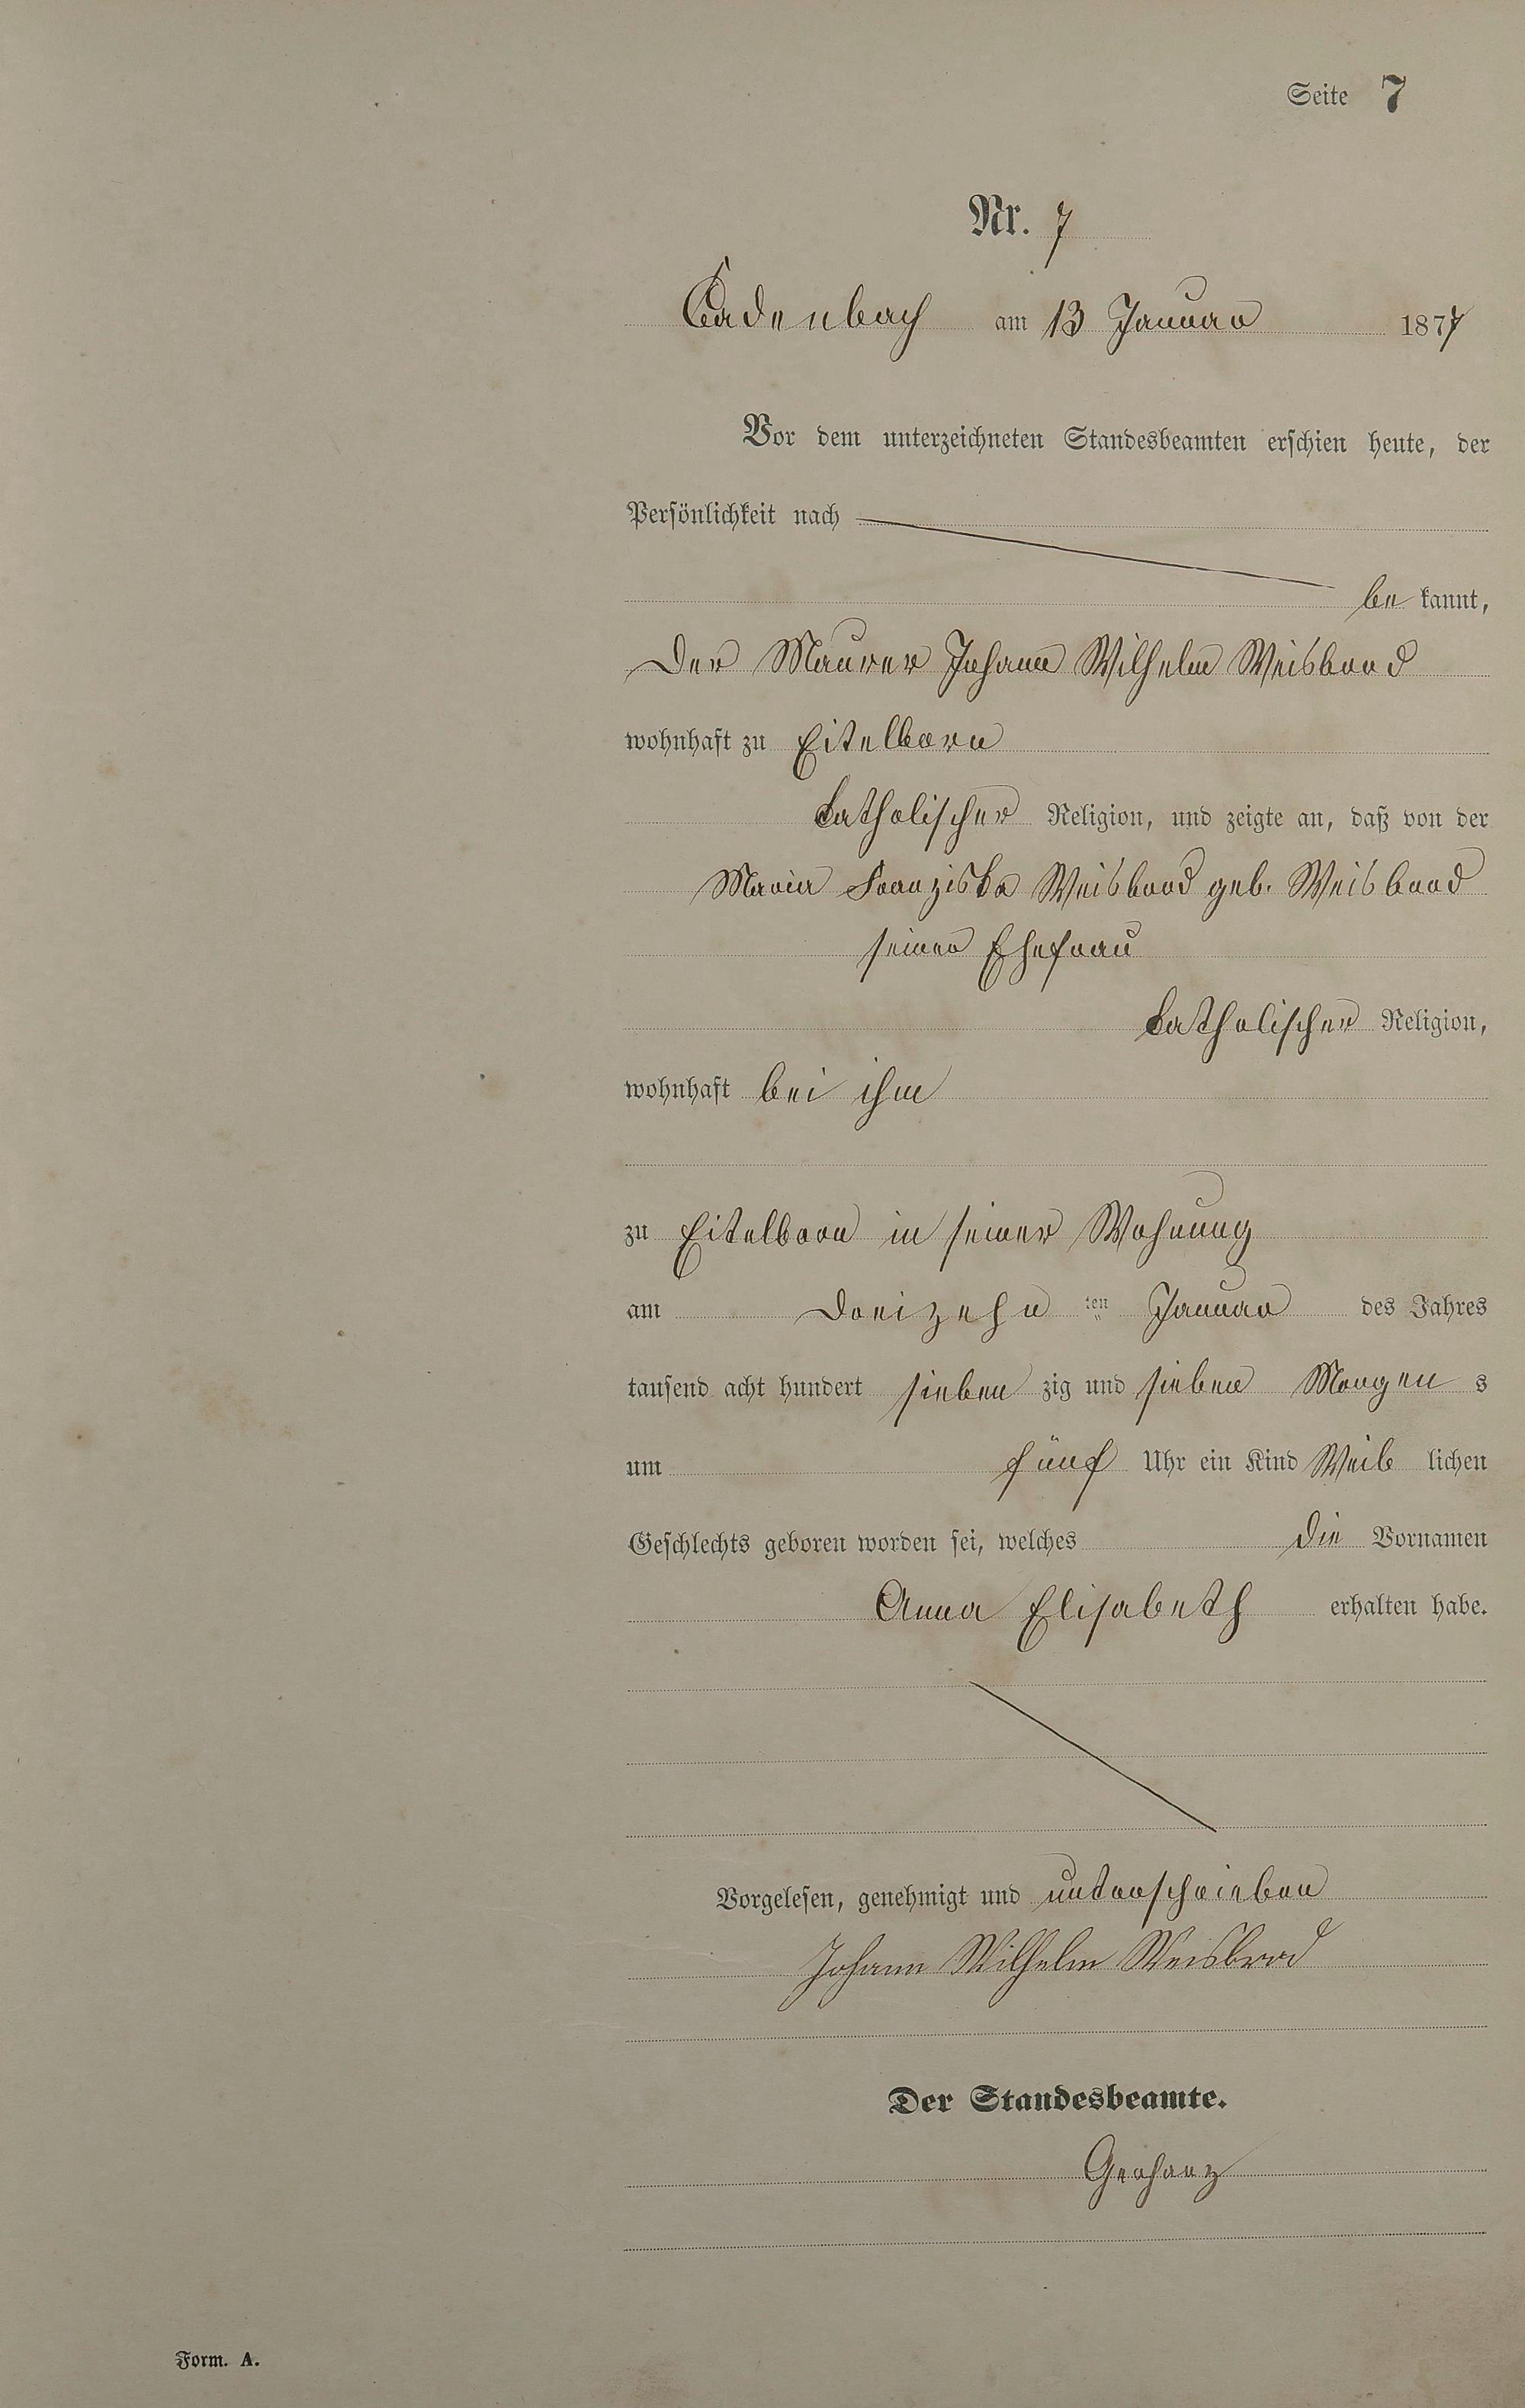 Seite 7
Nr. 7
Cadenbach am 13 Januar 1877
Vor dem unterzeichneten Standesbeamten erschien heute, der
Persönlichkeit nach
be kannt,
Der Maurer Johann Wilhelm Weisbrod
wohnhaft zu Eitelborn
katholischer Religion, und zeigte an, daß von der
Maria Franziska Weisbrod geb. Weisbrod
seiner Ehefrau
katholischer Religion,
wohnhaft bei ihm
zu Eitelborn in seiner Wohnung
am Dreizehn ten Januar des Jahres
tausend acht hundert sieben zig und sieben Morgen s
um fünf Uhr ein Kind Weib lichen
Geschlechts geboren worden sei, welches die Vornamen
Anna Elisabeth erhalten habe.
Vorgelesen, genehmigt und unterschrieben
Johann Wilhelm Weisbrod
Der Standesbeamte.
Gerharz
Form. A.